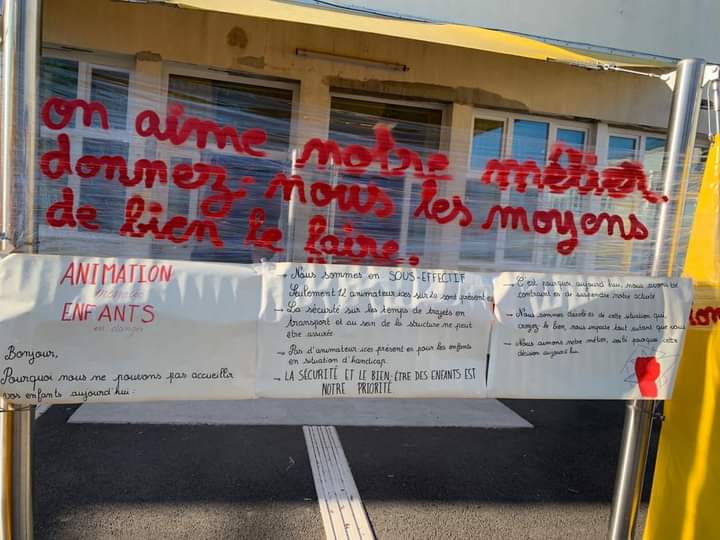 on aime notre métier.
donnez-nous les moyens
de bien le faire.
ANIMATION
menacée
ENFANTS
en danger
Bonjour,
Pourquoi nous ne pouvons pas accueillir
vos enfants aujourd'hui :
→ Nous sommes en SOUS-EFFECTIF
Seulement 12 animateur.ices sur 20 sont présent.es
→ La sécurité sur les temps de trajets en
transport et au sein de la structure ne peut
être assurée.
→ Pas d'animateur.ices présent.es pour les enfants
en situation d'handicap.
→ LA SÉCURITÉ ET LE BIEN-ÊTRE DES ENFANTS EST
NOTRE PRIORITÉ
→ C'est pourquoi, aujourd'hui, nous avons été
contraint.es de suspendre notre activité
→ Nous sommes désolé.es de cette situation qui,
croyez-le bien, nous impacte tout autant que vous
→ Nous aimons notre métier, voilà pourquoi cette
décision aujourd'hui.